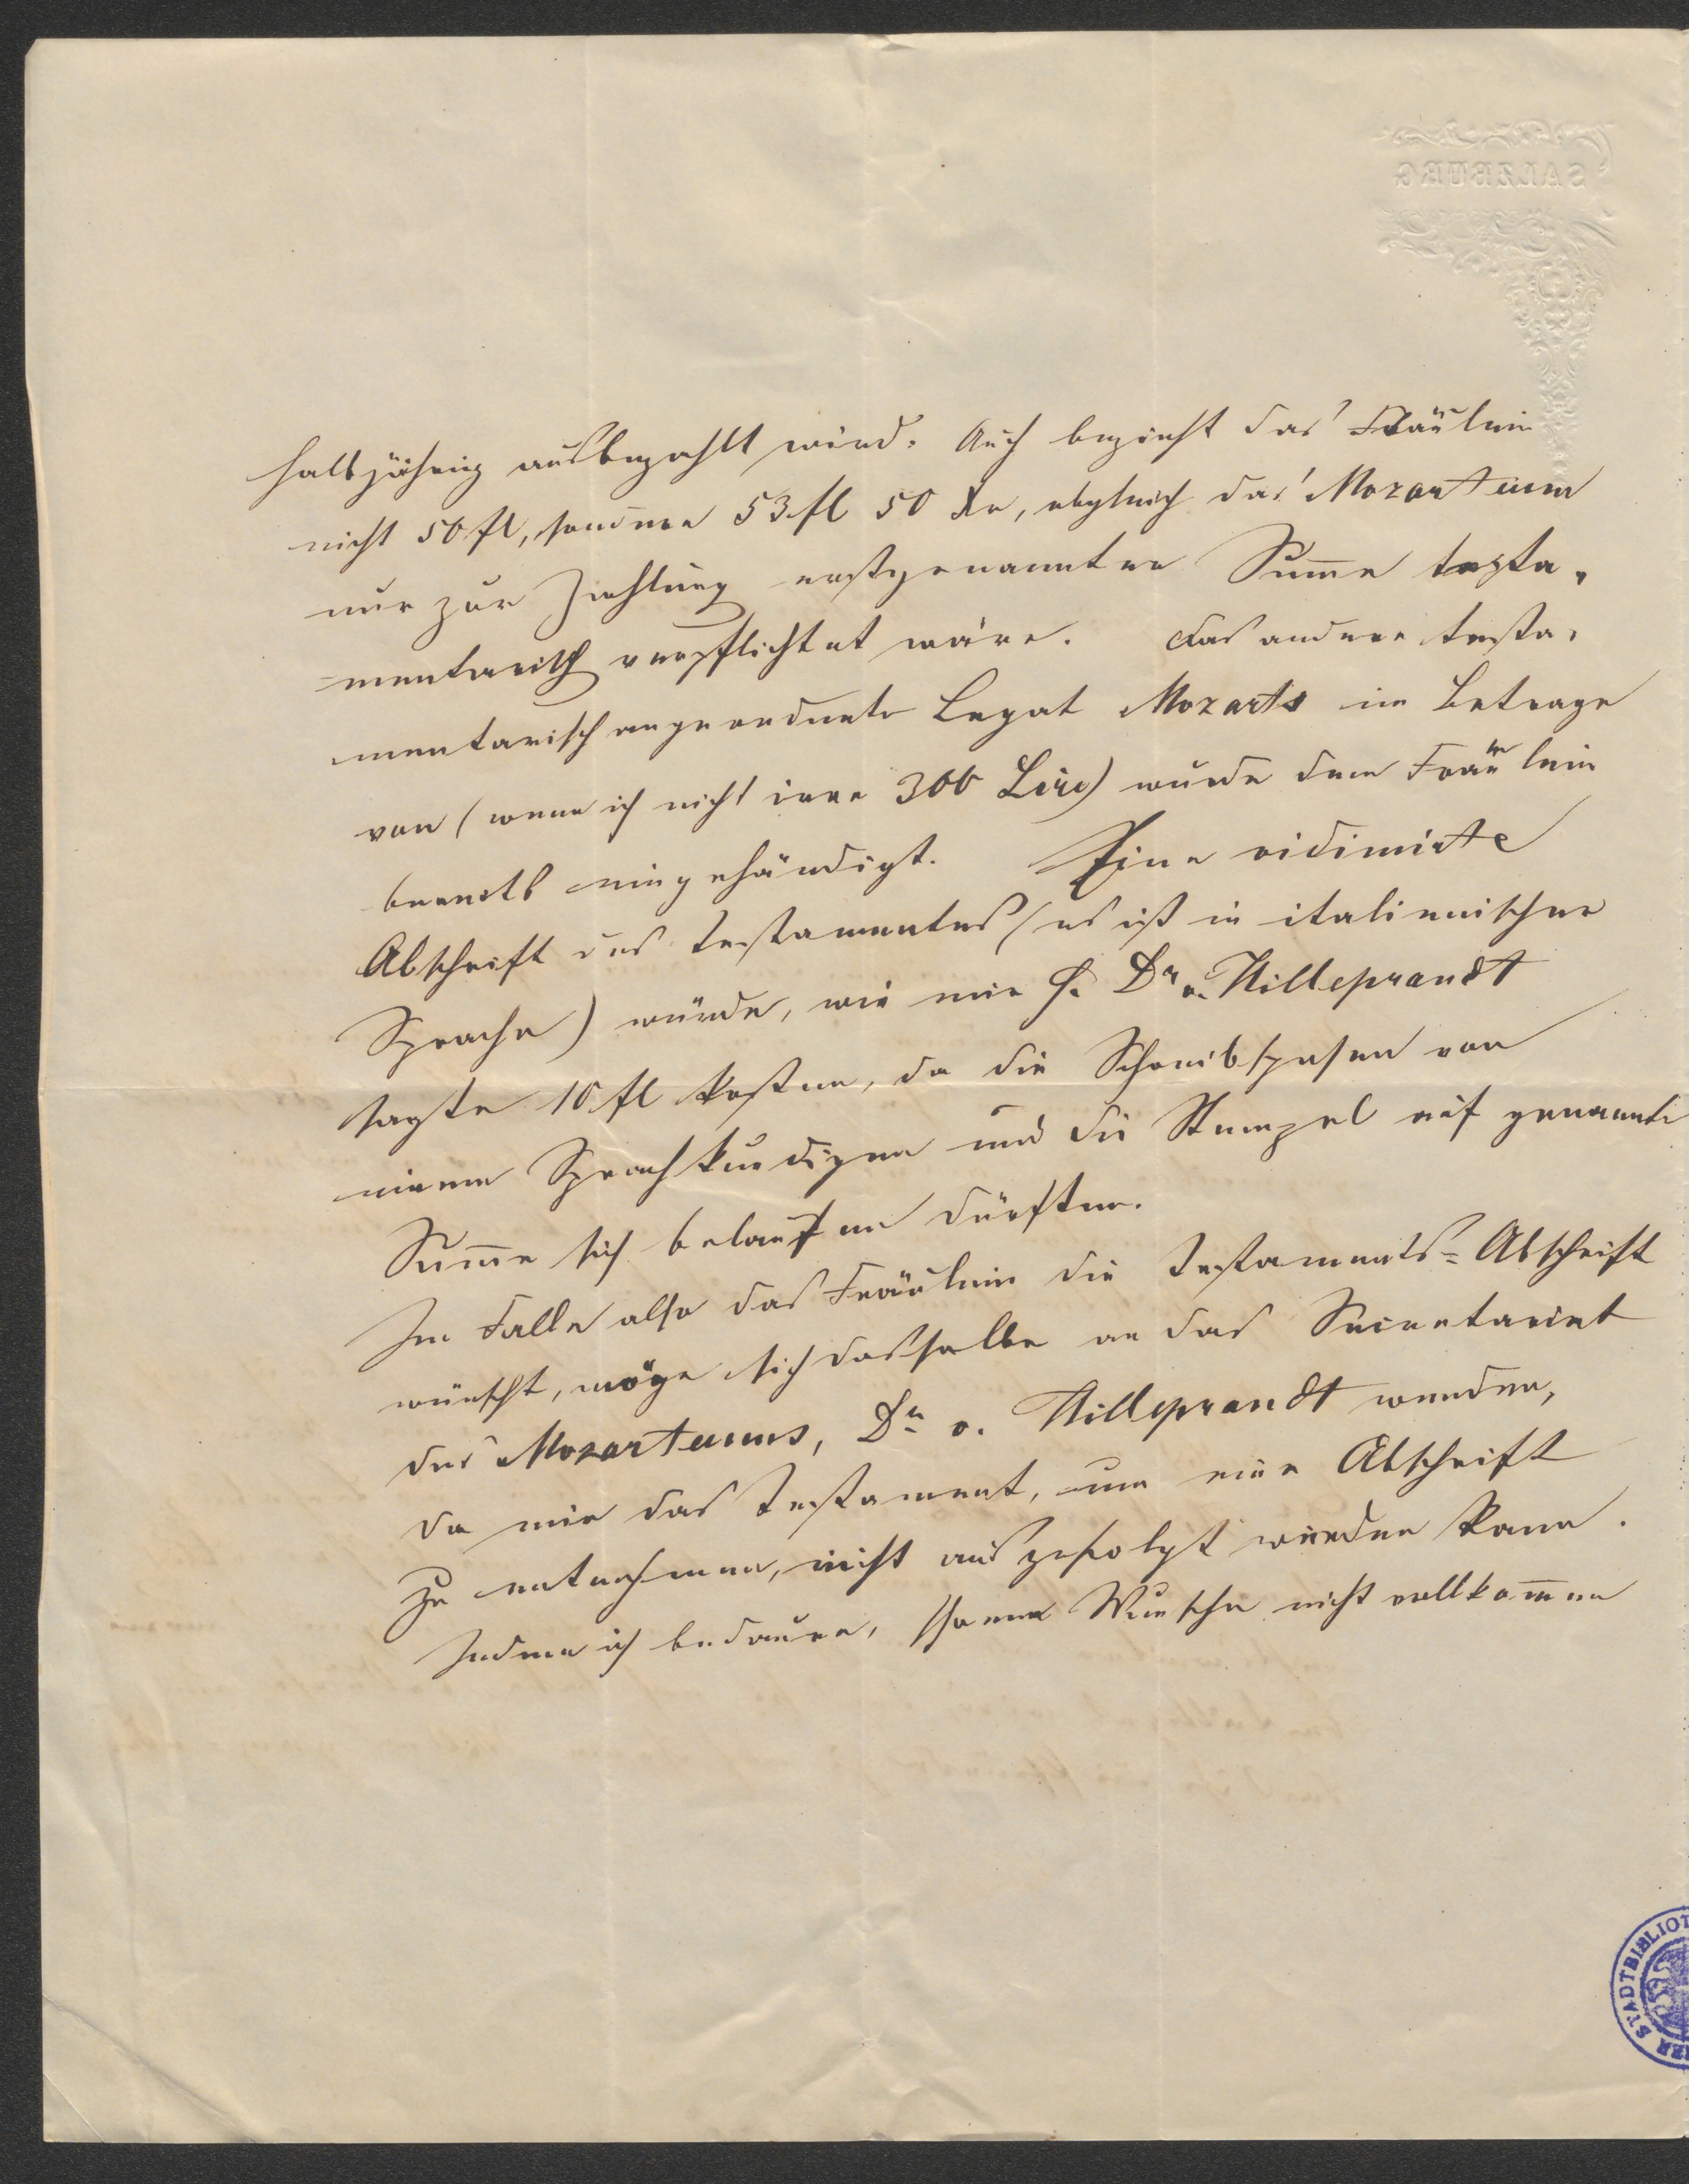 SALZBURG
halbjährig ausbezahlt wird. Auch bezieht das Fräulein
nicht 50 fl, sondern 53 fl 50 Xr, obgleich das Mozarteum
nur zur Zahlung erstgenannter Summe testa„
mentarisch verpflichtet wäre. Das andere testa„
mentarisch angeordnete Legat Mozarts im Betrage
von (wenn ich nicht irre 300 Lire) wurde dem Fräulein
bereits eingehändigt. Eine vidimirte
Abschrift des Testamentes (es ist in italienischer
Sprache) würde, wie mir H. Dr v. Hilleprandt
sagte 10 fl kosten, da die Schreibspesen von
einem Sprachkundigen und die Stempel auf genannte
Sum̅e sich belaufen dürften.
Im Falle also das Fräulein die Testaments=Abschrift
wünscht, möge sich dasselbe an das Secretariat
des Mozarteums, Dr v. Hilleprandt wenden,
da mir das Testament, um eine Abschrift
zu entnehmen, nicht ausgefolgt werden kann.
Indem ich bedaure, Ihrem Wunsche nicht vollkom̅en
STADTBIBLIOT